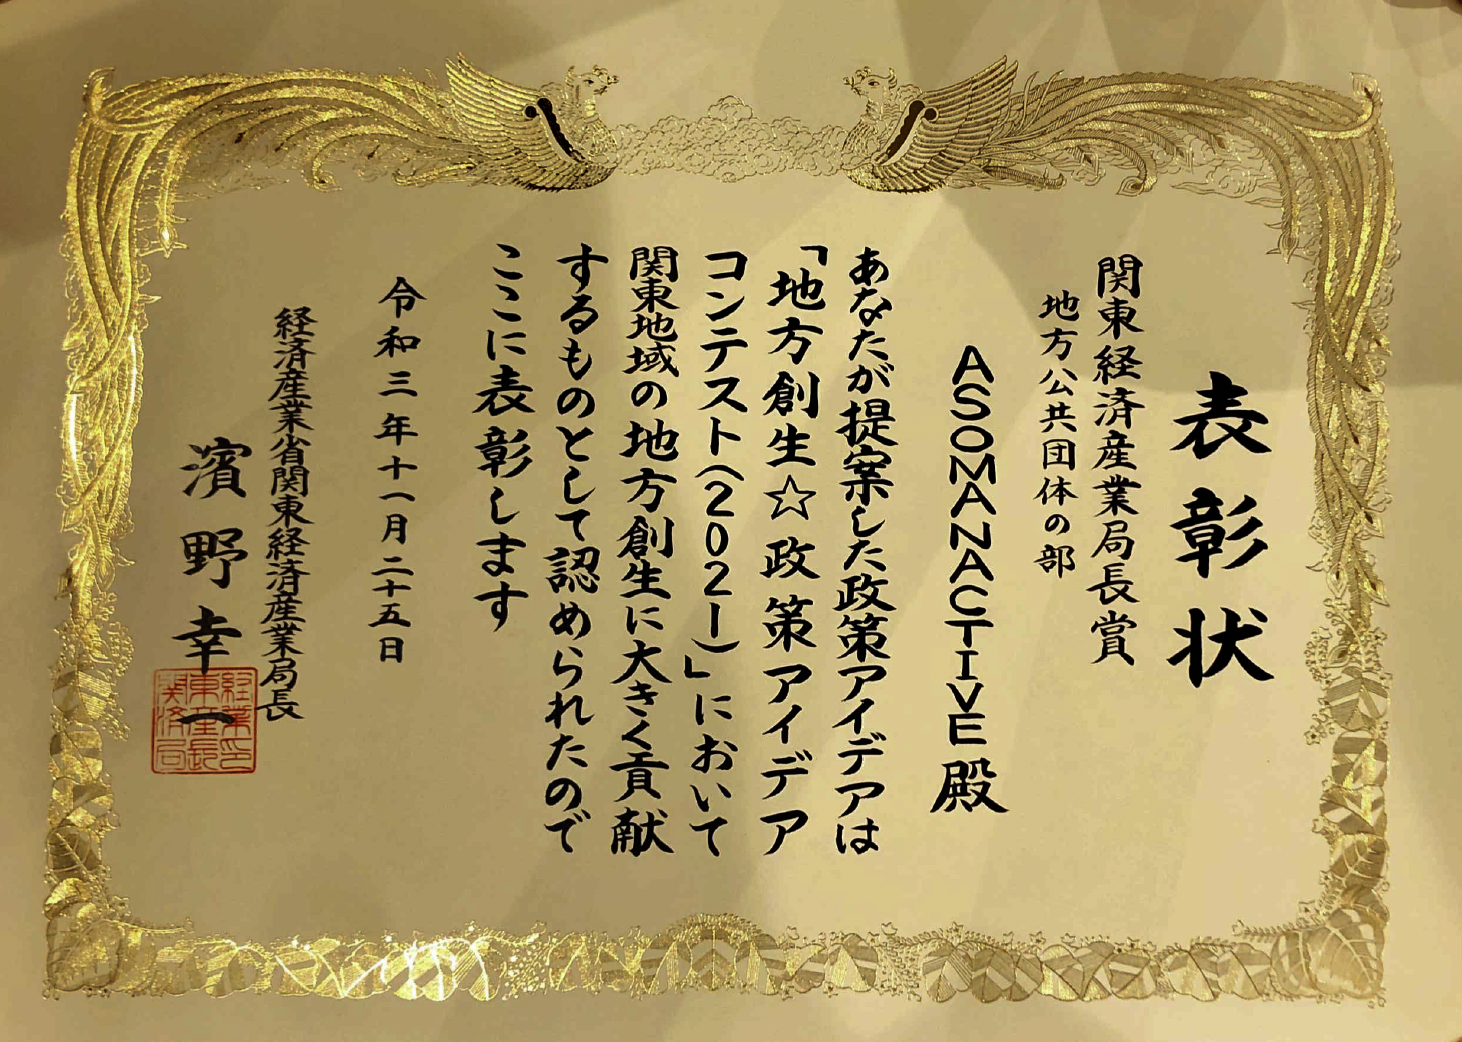 表彰状
関東経済産業局長賞
地方公共団体の部
ASOMANACTIVE殿
あなたが提案した政策アイデアは
「地方創生☆政策アイデア
コンテスト(2021)」において
関東地域の地方創生に大きく貢献
するものとして認められたので
ここに表彰します
令和三年十一月二十五日
経済産業省関東経済産業局長
濱野幸一
経業印
東産長
関済局